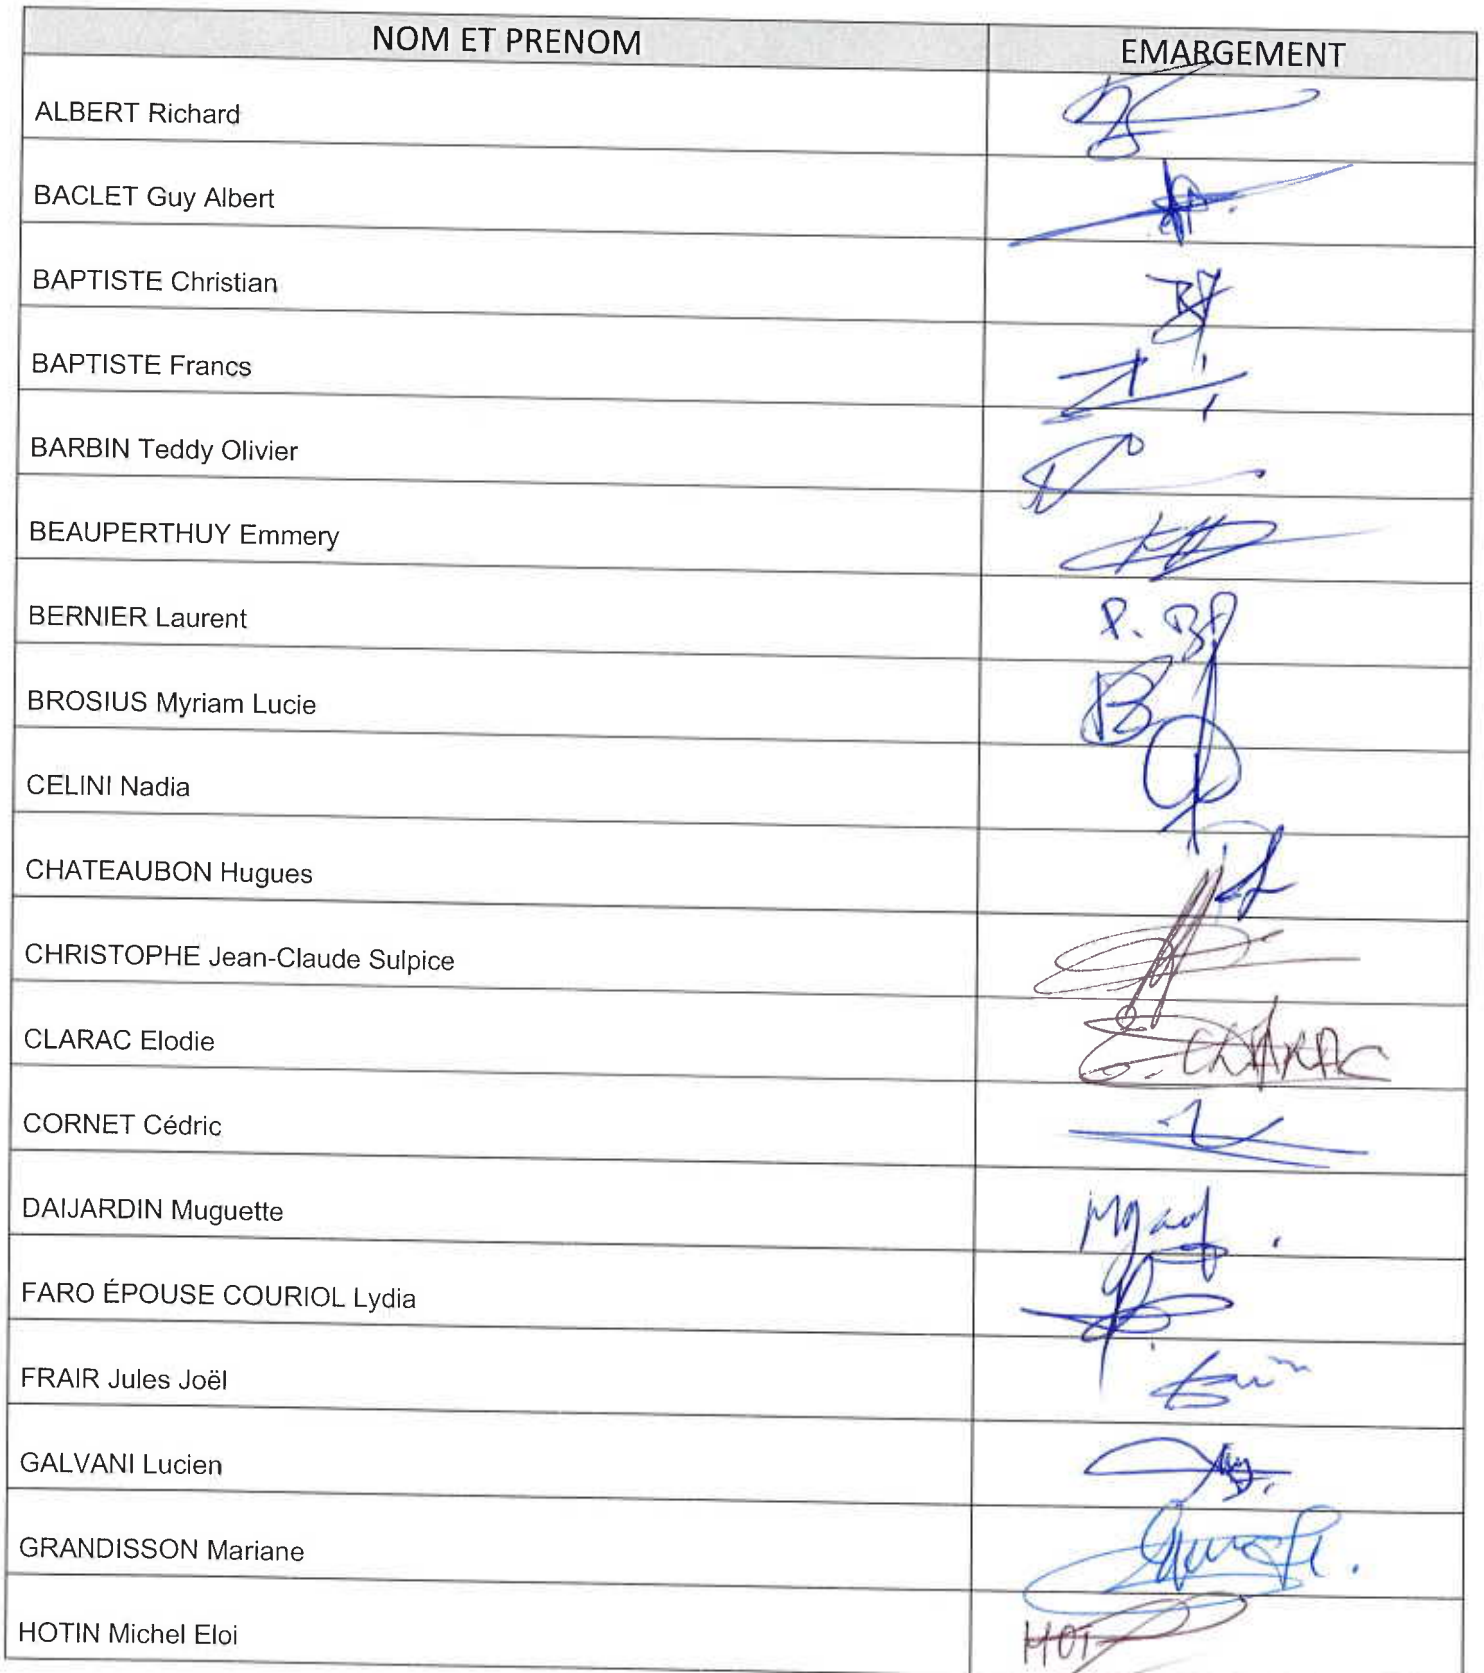 NOM ET PRENOM EMARGEMENT
ALBERT Richard
BACLET Guy Albert
BAPTISTE Christian
BAPTISTE Francs
BARBIN Teddy Olivier
BEAUPERTHUY Emmery
BERNIER Laurent P.
BROSIUS Myriam Lucie
CELINI Nadia
CHATEAUBON Hugues
CHRISTOPHE Jean-Claude Sulpice
CLARAC Elodie CLARAC
CORNET Cédric
DAIJARDIN Muguette
FARO ÉPOUSE COURIOL Lydia
FRAIR Jules Joël
GALVANI Lucien
GRANDISSON Mariane
HOTIN Michel Eloi HOT